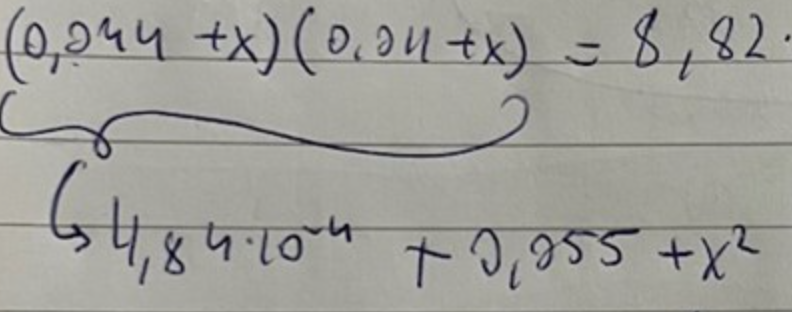 (0,044 +x)(0.011+x) = 8,82·
↳ 4,84·10⁻⁴ + 0,055 + x²